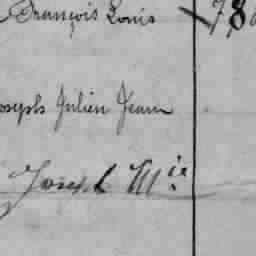 François Louis 78
Joseph Julien Jean
Joseph Mie